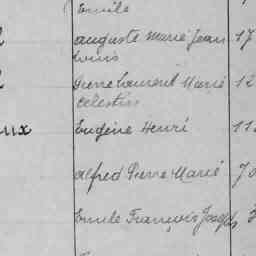 Emile
l auguste Marie Jean 17
Louis
l Pierre Laurent Marie 12
Celestin
aux Eugène Henri 11
alfred Pierre Marie 70
Emile François Joseph